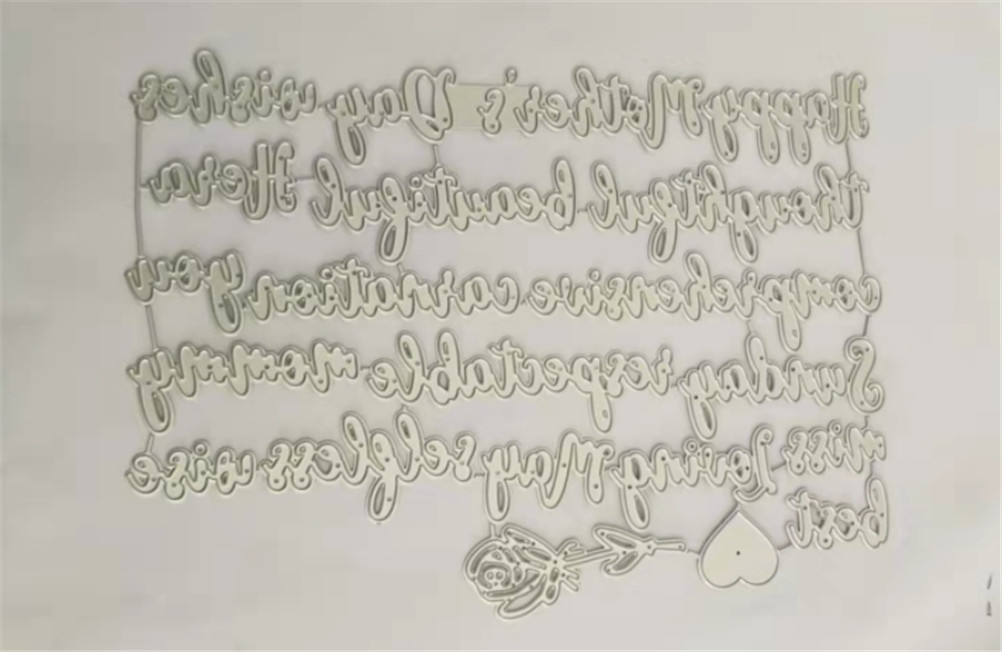 Happy Mother's Day wishes
thoughtful beautiful Hera
comprehensive carnation you
Sunday respectable mommy
miss Loving May selfless wise
best